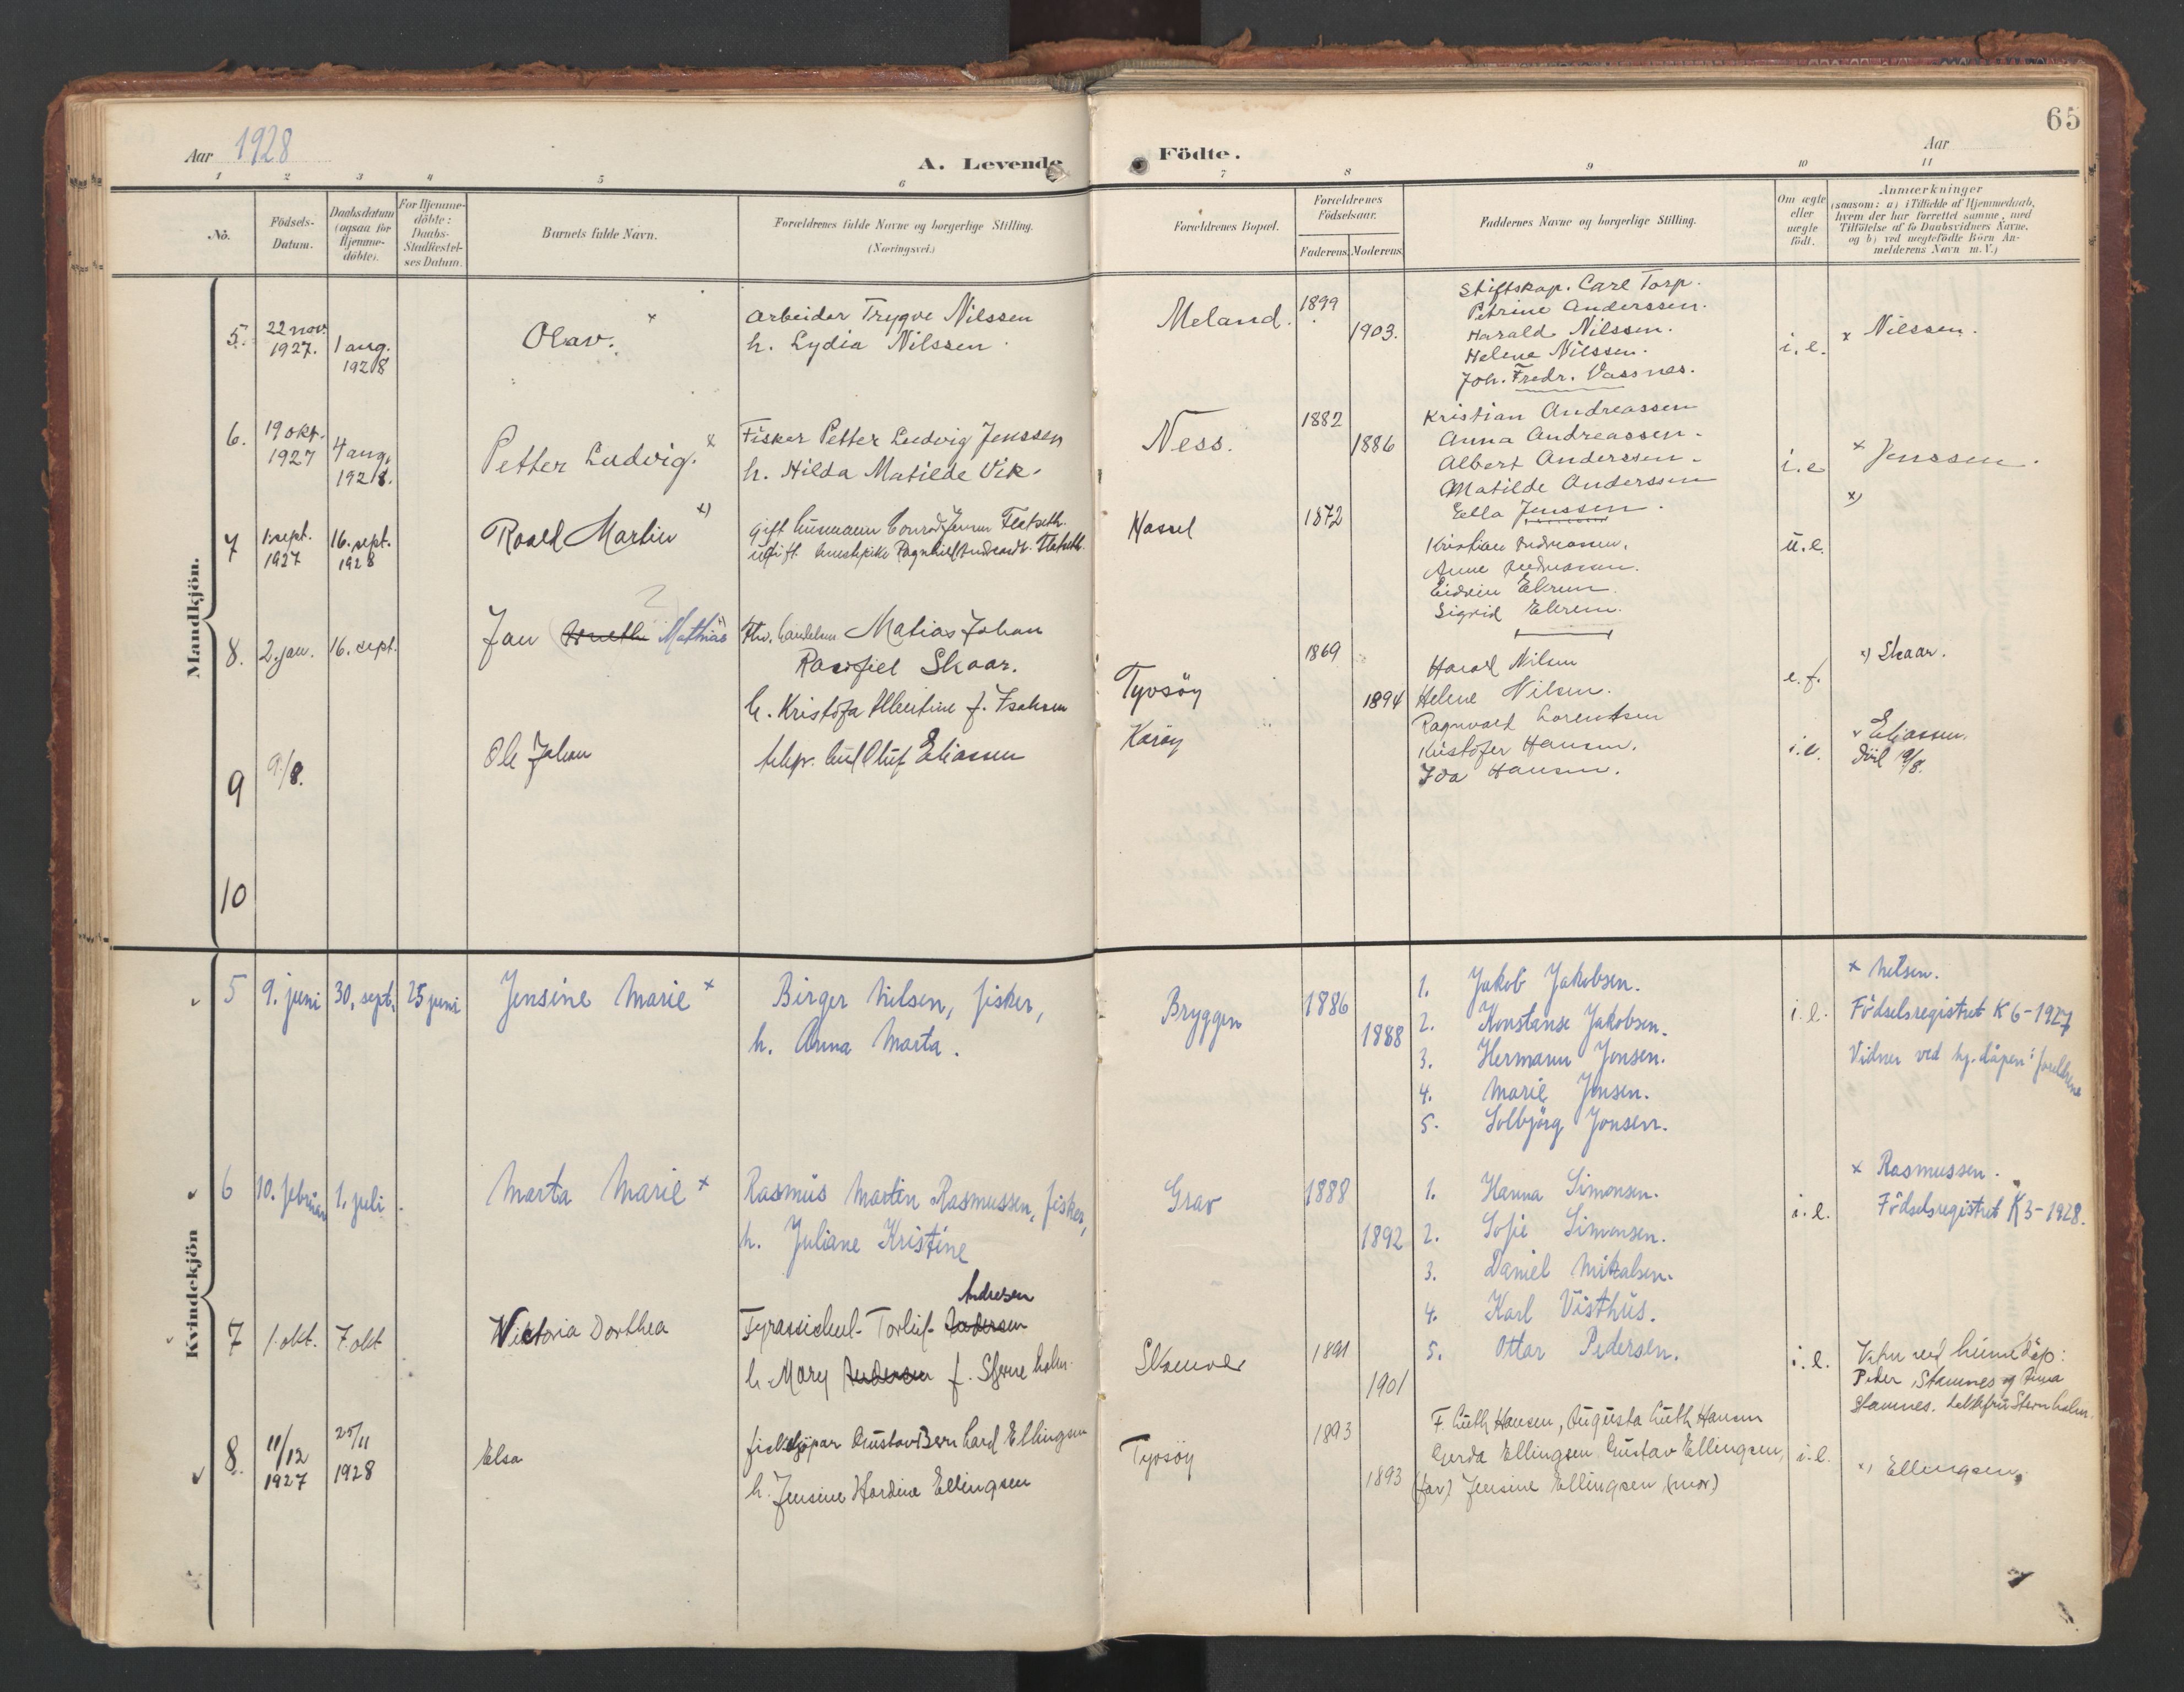 Aar 1928
A. Levende
Födte.
65
Aar
1 2 3 4 5 6 7 8 9 10 11
No.
Födsels-
Datum.
Daabsdatum
(ogsaa for
Hjemme-
döbte).
For Hjemme-
döbte:
Daabs-
Stadfæstel-
ses Datum.
Barnets fulde Navn.
Forældrenes fulde Navne og borgerlige Stilling.
(Næringsvei.)
Forældrenes Bopæl.
Forældrenes
Födselsaar.
Faderens. Moderens.
Faddernes Navne og borgerlige Stilling.
Om ægte
eller
uægte
født.
Anmærkninger
(saasom: a) i Tilfælde af Hjemmedaab,
hvem der har forrettet samme, med
Tilföielse af to Daabsvidners Navne,
og b) ved uægtefödte Börn An-
melderens Navn m. V.)
Mandkjön.
5.
22 nov.
1927.
1 aug.
1928
Olav. x
Arbeider Trygve Nilssen
h. Lydia Nilssen
Meland.
1899
1903.
Stiftskap. Carl Torp.
Petrine Anderssen.
Harald Nilssen.
Helene Nilssen.
Joh. Fredr. Vassnes.
i. e.
x Nilssen.
6.
19 okt.
1927
4 aug.
1928.
Petter Ludvig. x
Fisker Petter Ludvig Jenssen
h. Hilda Matilde Vik.
Ness.
1882
1886
Kristian Andreassen
Anna Andreassen.
Albert Anderssen.
Matilde Anderssen
Ella Jenssen.
i. e
x Jenssen.
7
1. sept.
1927
16. sept.
1928
Roald Martin x)
gift Conrad Jensen Flatseth.
ugift Ragnhild
Hassel
1872
Kristian Andreassen.
Anne Andreassen.
Ekrem
Sigrid Ekrem.
u. e.
x)
8.
2. jan.
16. sept.
Jan Mathias x)
Matias Johan
Skaar.
h. Kristofa Albertine f. Isaksen
Tyvsöy
1869
1894
Harald Nilsen
Helene Nilsen.
Ragnvald Lorentsen
Kristofer Hansen.
Ida Hansen.
e. f.
x) Skaar.
9
9/8.
Ole Johan
Oluf Eliassen
Karöy
i. e.
x Eliassen.
10
Kvindekjön
5
9. juni
30. sept.
25 juni
Jensine Marie x
Birger Nilsen, fisker,
h. Anna Marta.
Bryggen
1886
1888
1. Jakob Jakobsen.
2. Konstanse Jakobsen.
3. Hermann Jonsen.
4. Marie Jonsen.
5. Solbjörg Jonsen.
i. e.
x Nilsen.
Födselsregistret K 6-1927
Vidner ved hj. dåpen: foreldrene
6
10. februar
1. juli
Marta Marie x
Rasmus Martin Rasmussen, fisker,
h. Juliane Kristine
Grav
1888
1892
1. Hanna Simonsen.
2. Sofie Simonsen.
3. Daniel Mikalsen.
4. Karl Visthus.
5. Ottar Pedersen.
i. e.
x Rasmussen.
Födselsregistret K 3-1928.
7
1. okt.
7. okt
Viktoria Dorthea
Andresen
Fyrassistent Torleif Andersen
h. Mary Andersen f. Stjerneholm
Skomvær
1891
1901
i. e.
Vidner ved hjemmedåp:
Peder Stamnes og
Stamnes.
8.
11/12
1927
25/11
1928
Elsa
fiskekjöper Gustav Bernhard Ellingsen
h. Jensine Hardine Ellingsen
Tyvsöy
1893
1893
F. Luth Hansen, Augusta Luth Hansen
Gerda Ellingsen, Gustav Ellingsen,
(far) Jensine Ellingsen (mor)
i. e.
x) Ellingsen.